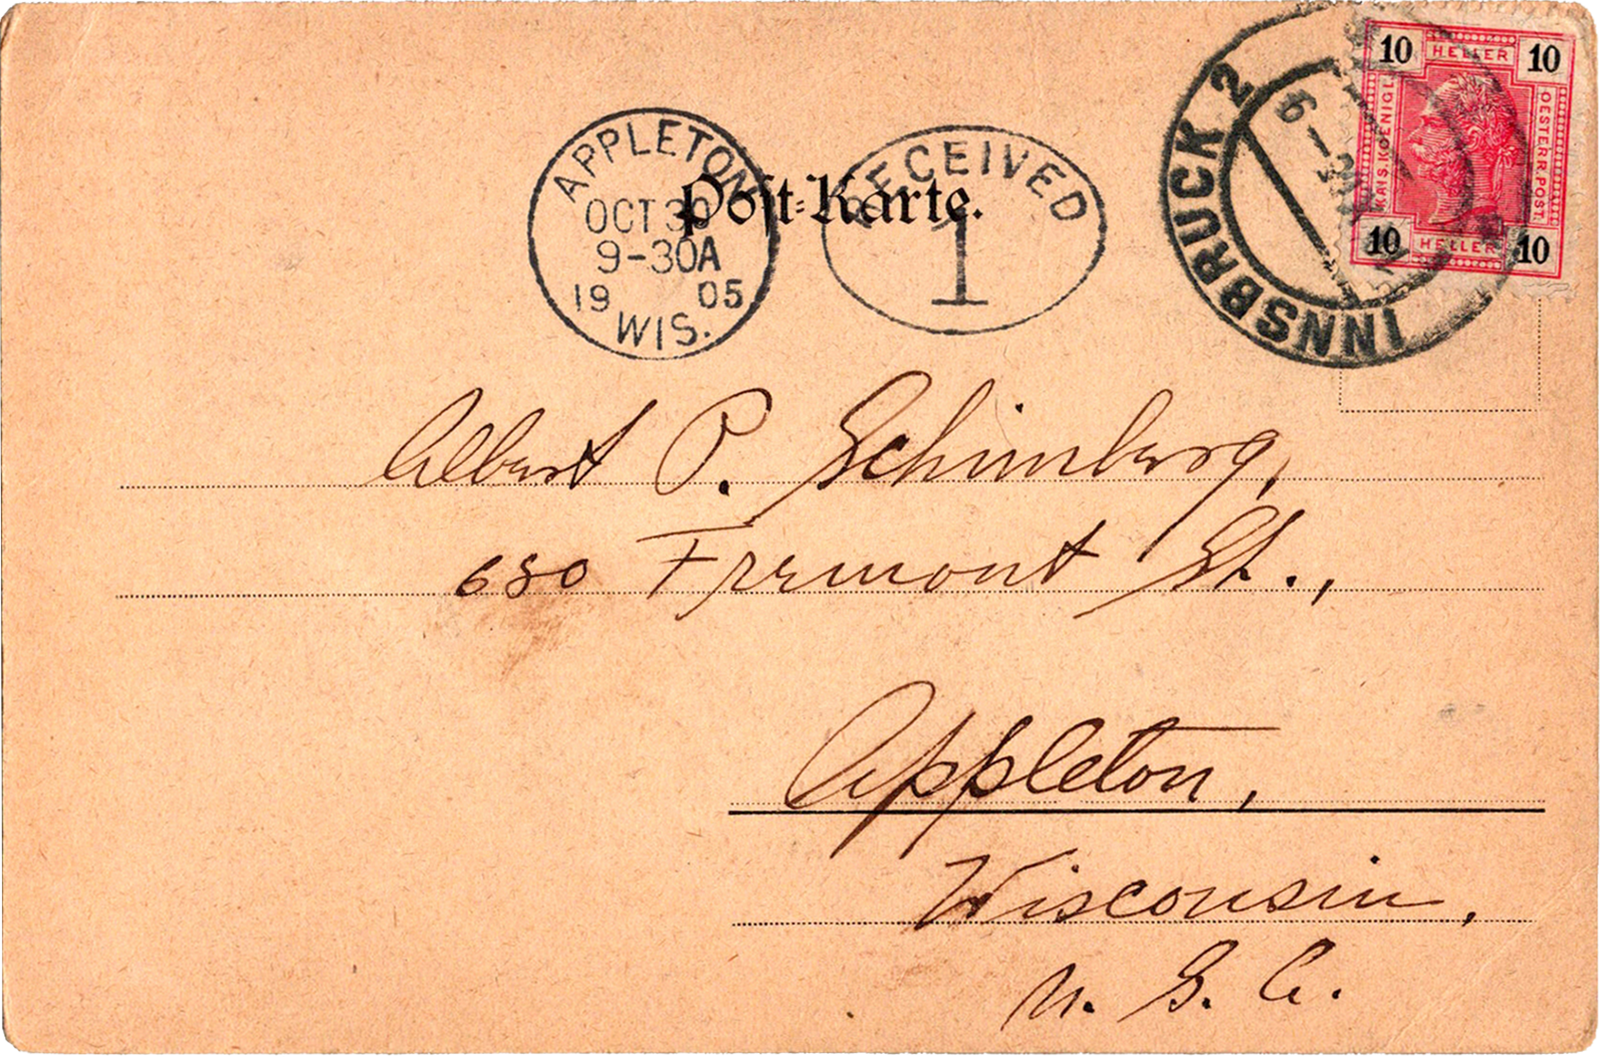 APPLETON
OCT 30
9-30A
19 05
WIS.
RECEIVED
1
Post-Karte.
INNSBRUCK 2
10 HELLER 10
KAIS. KOENIGL.
OESTERR. POST.
10 HELLER 10
Albert P. Schimberg,
680 Fremont St.,
Appleton,
Wisconsin,
U. S. A.